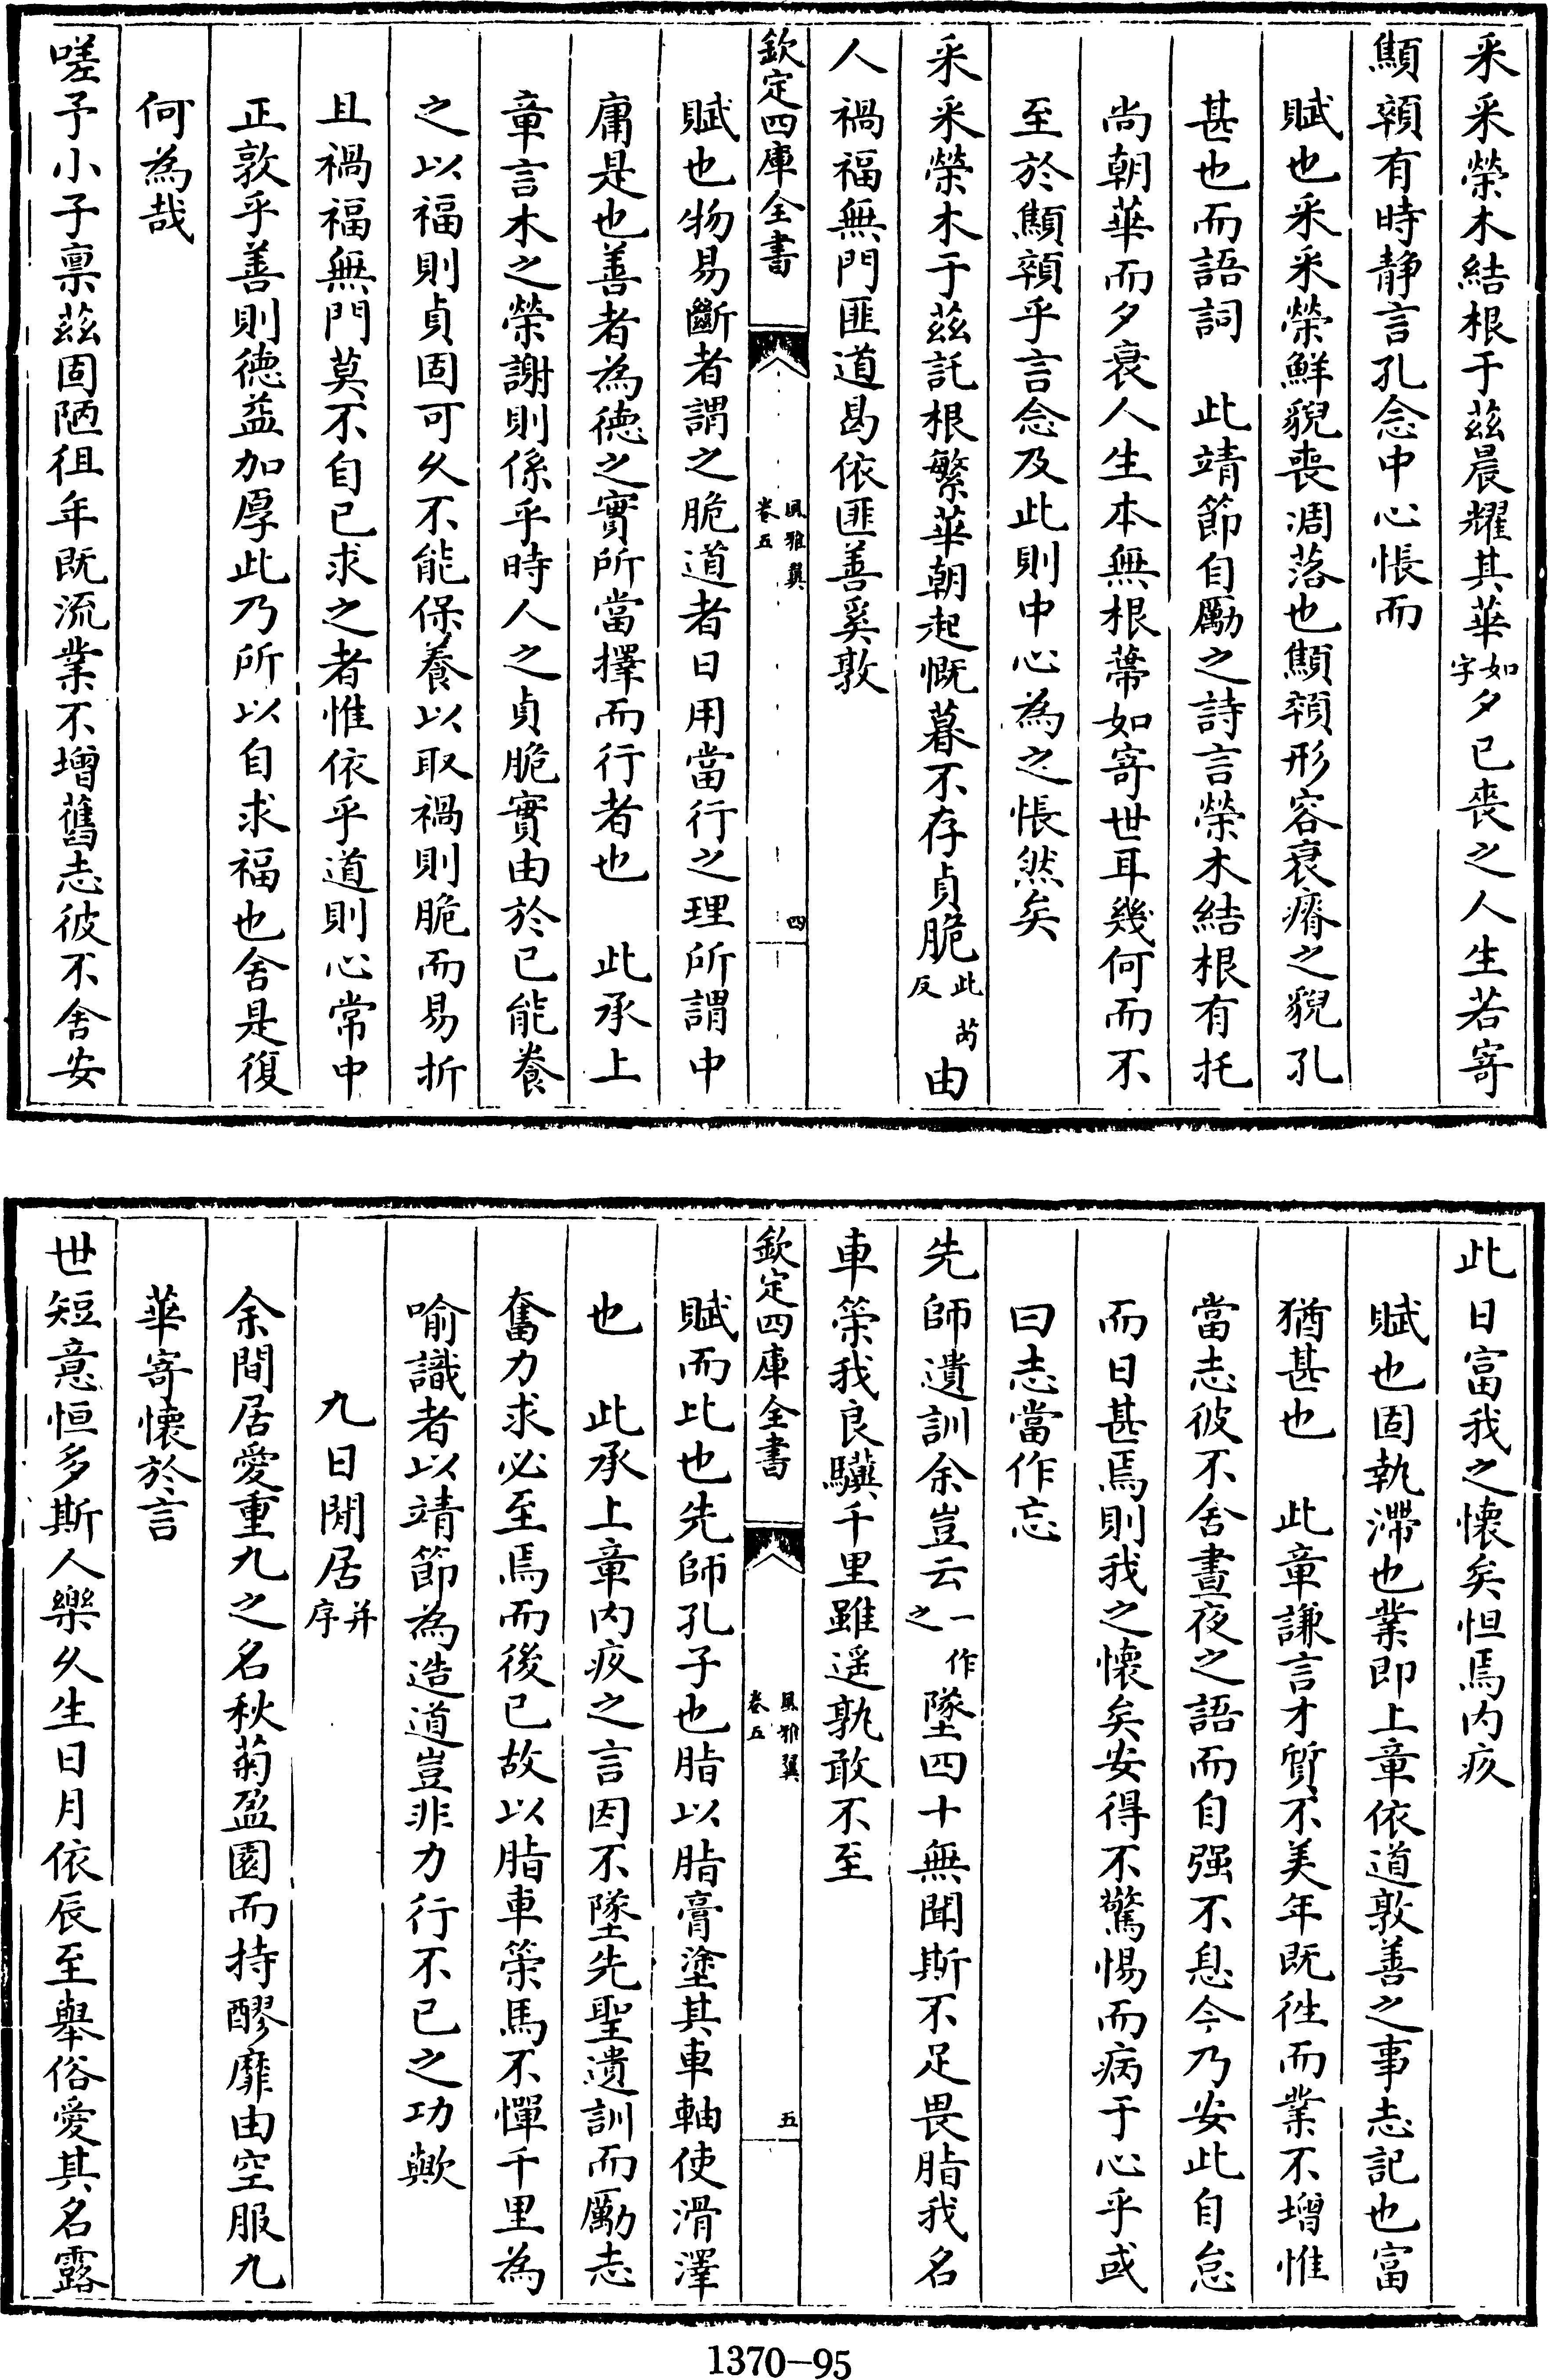 采采榮木結根于茲晨耀其華如字夕已喪之人生若寄
顦顇有時静言孔念中心悵而
賦也采采榮鮮貌喪凋落也顦顇形容衰瘠之貌孔
甚也而語詞　此靖節自勵之詩言榮木結根有托
尚朝華而夕衰人生本無根蔕如寄世耳幾何而不
至於顦顇乎言念及此則中心為之悵然矣
采采榮木于茲託根繁華朝起慨暮不存貞脆此芮反由
人禍福無門匪道曷依匪善奚敦
欽定四庫全書　風雅翼卷五　四
賦也物易斷者謂之脆道者日用當行之理所謂中
庸是也善者為德之實所當擇而行者也　此承上
章言木之榮謝則係乎時人之貞脆實由於已能養
之以福則貞固可乆不能保養以取禍則脆而易折
且禍福無門莫不自已求之者惟依乎道則心常中
正敦乎善則德益加厚此乃所以自求福也舍是復
何為哉
嗟予小子禀茲固陋徂年既流業不增舊志彼不舍安
此日富我之懷矣怛焉内疚
賦也固執滯也業即上章依道敦善之事志記也富
猶甚也　此章謙言才質不美年既徃而業不增惟
當志彼不舍晝夜之語而自强不息今乃安此自怠
而日甚焉則我之懷矣安得不驚惕而病于心乎或
曰志當作忘
先師遺訓余豈云一作之墜四十無聞斯不足畏脂我名
車策我良驥千里雖遥孰敢不至
欽定四庫全書　風雅翼卷五　五
賦而比也先師孔子也脂以脂膏塗其車軸使滑澤
也　此承上章内疚之言因不墜先聖遺訓而勵志
奮力求必至焉而後已故以脂車策馬不憚千里為
喻識者以靖節為造道豈非力行不已之功歟
九日閒居并序
余閒居愛重九之名秋菊盈園而持醪靡由空服九
華寄懷於言
世短意恒多斯人樂乆生日月依辰至舉俗愛其名露
1370—95